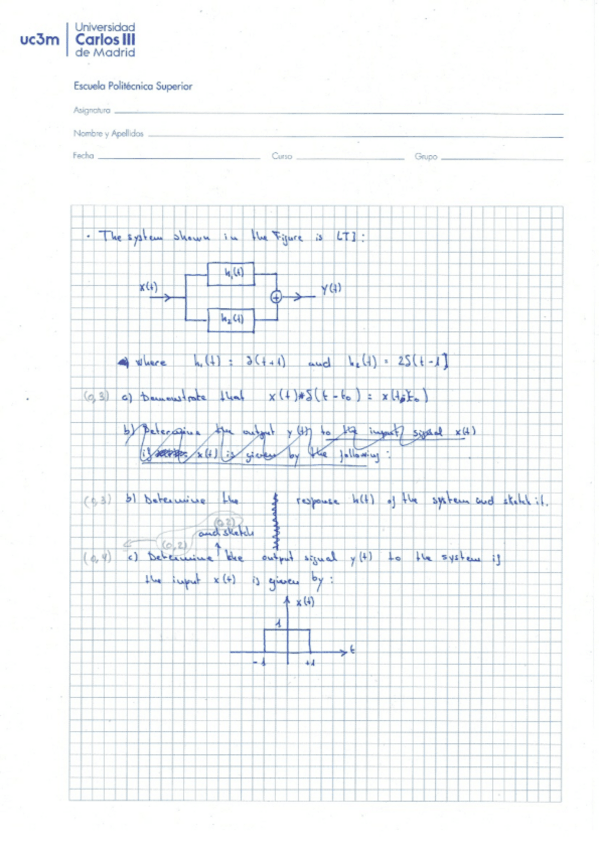 uc3m
Universidad
Carlos III
de Madrid
Escuela Politécnica Superior
Asignatura
Nombre y Apellidos
Fecha Curso Grupo
· The system shown in the Figure is LTI:
h₁(t)
x(t) + y(t)
h₂(t)
where h₁(t) = δ(t+1) and h₂(t) = 2δ(t-1)
(0,3) a) Demonstrate that x(t)*δ(t-t₀) = x(t-t₀)
b) Determine the output y(t) to the input signal x(t)
if x(t) is given by the following:
(0,3) b) Determine the response h(t) of the system and sketch it.
(0,2)
and sketch
(0,2)
(0,4) c) Determine the output signal y(t) to the system if
the input x(t) is given by:
x(t)
1
t
-1 +1